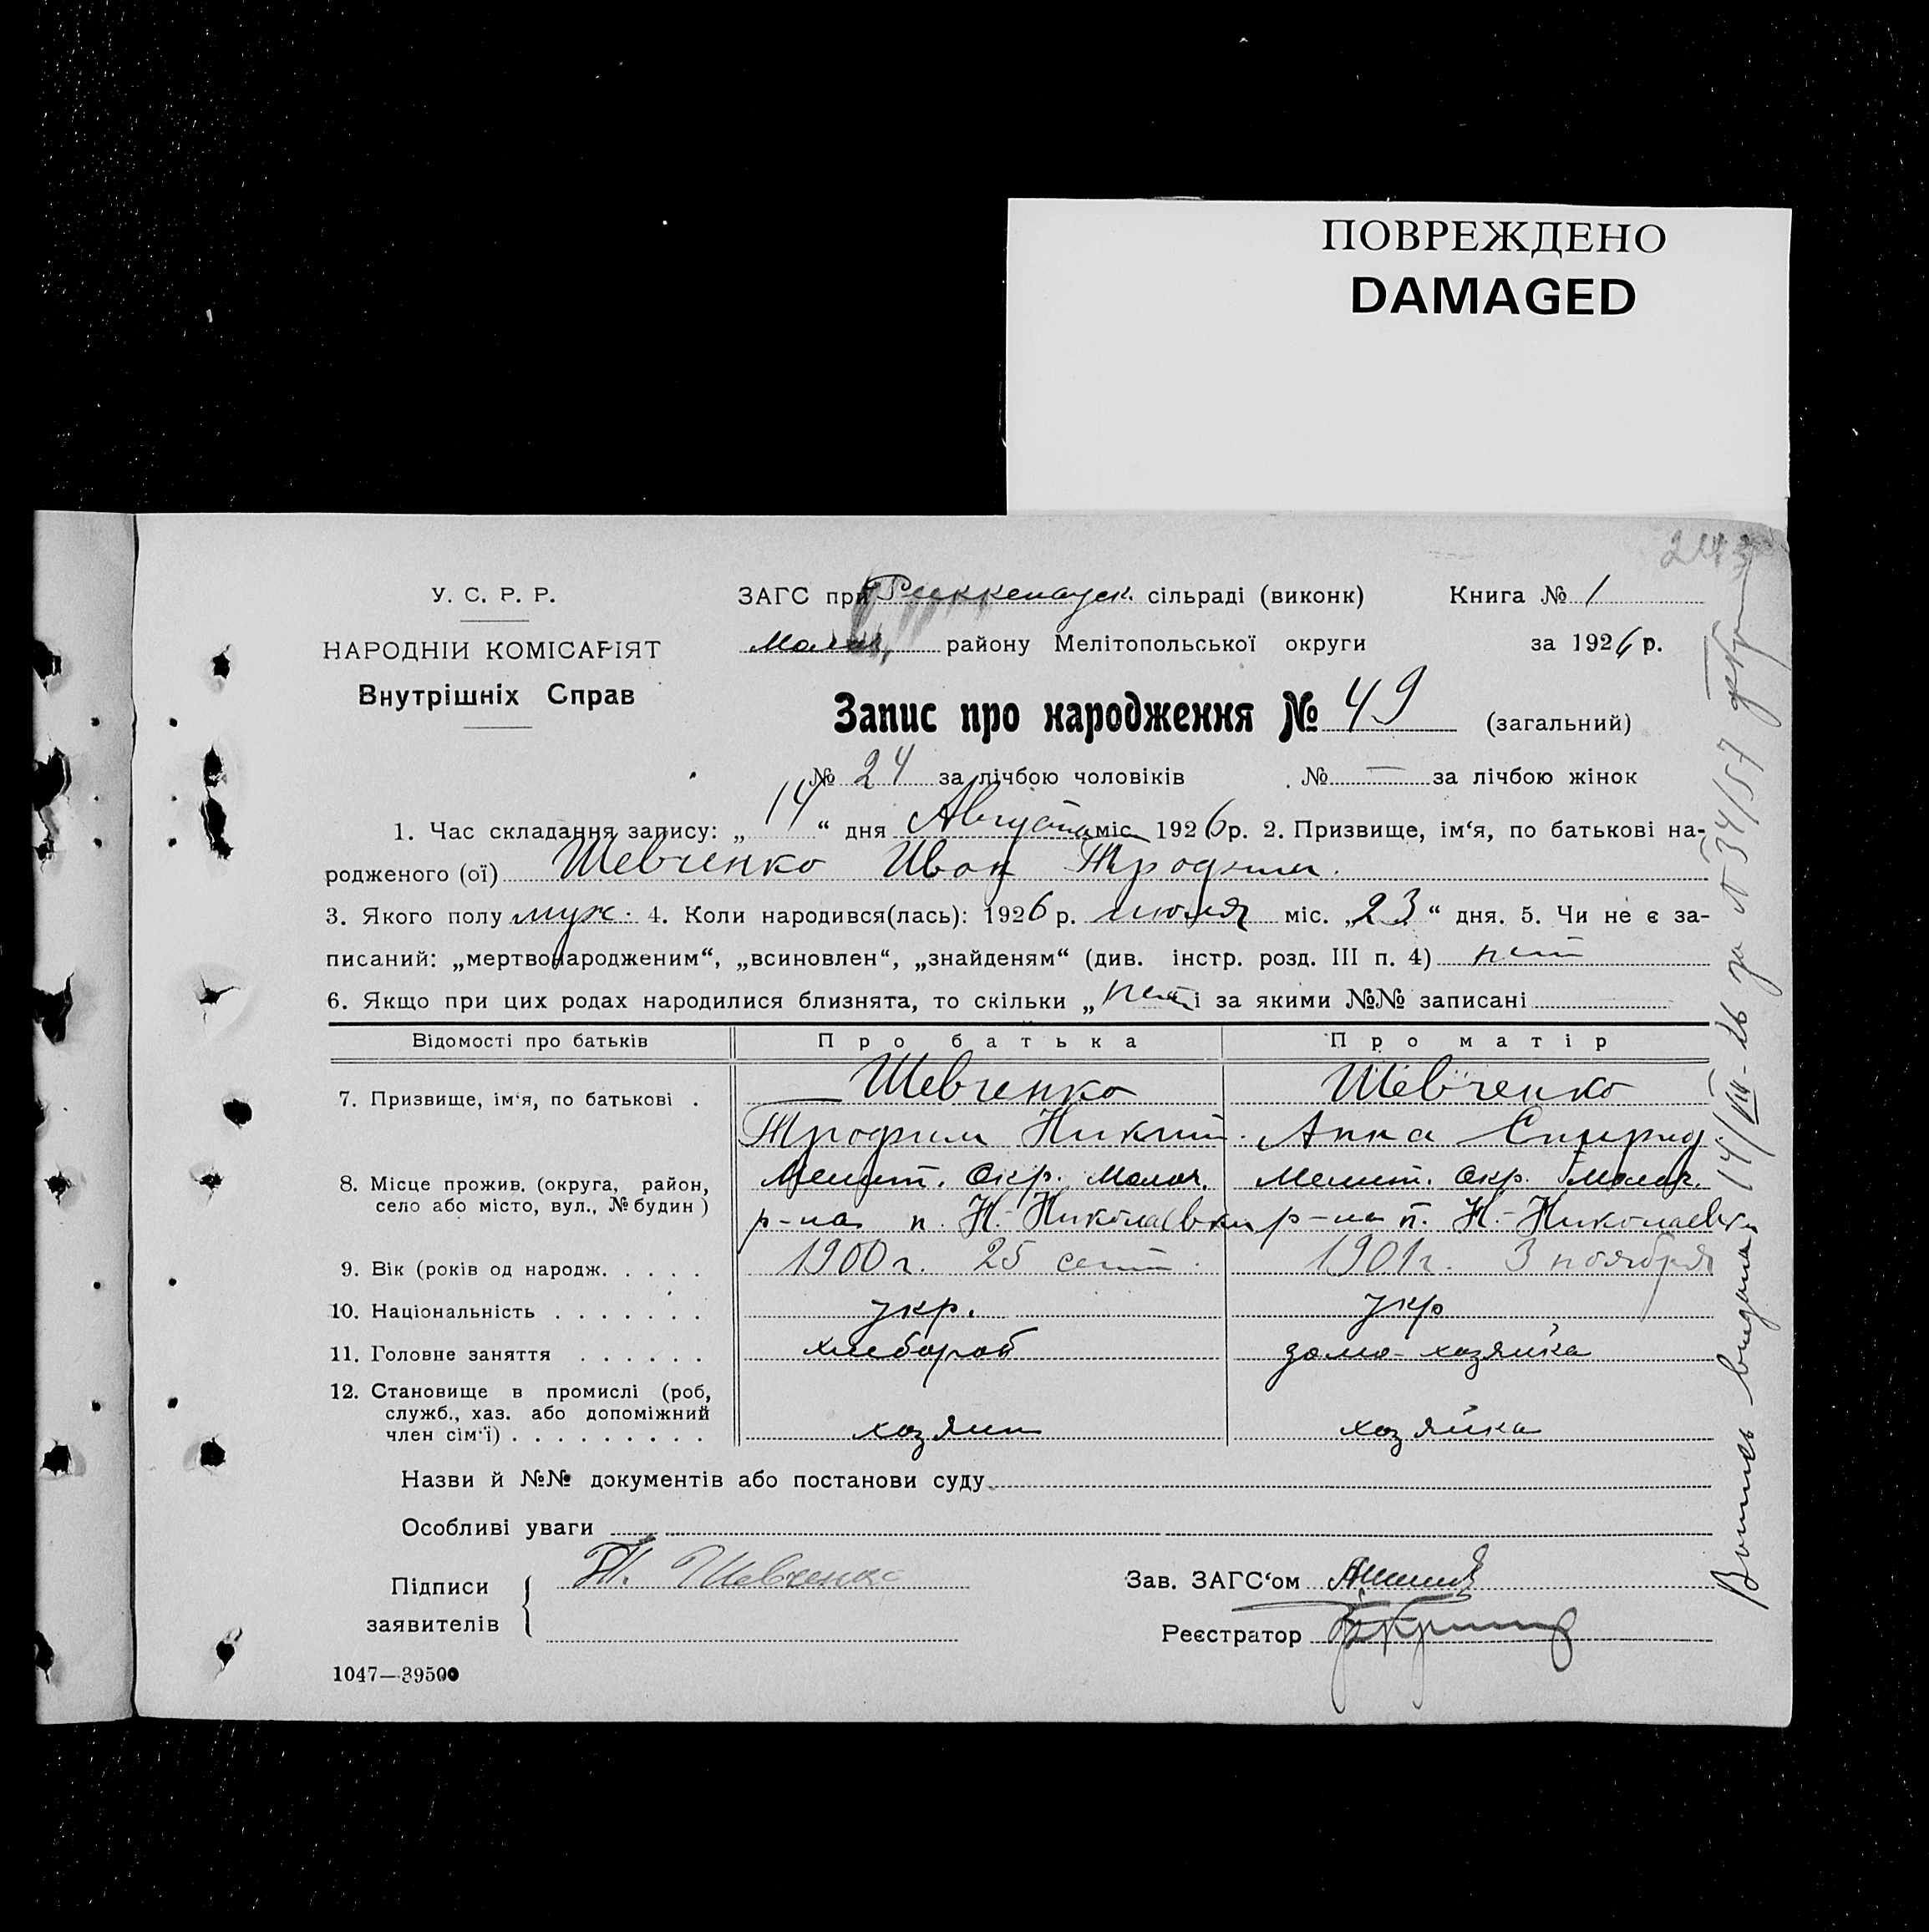 ПОВРЕЖДЕНО
DAMAGED
У. С. Р. Р.
НАРОДНІЙ КОМІСАРІЯТ
Внутрішніх Справ
ЗАГС при Риккенауск. сільраді (виконк) Книга № 1
Молоч. району Мелітопольської округи за 1926 р.
Запис про народження № 49 (загальний)
№ 24 за лічбою чоловіків № — за лічбою жінок
1. Час складання запису: „14“ дня Августа міс. 1926 р. 2. Призвище, ім‘я, по батькові на-
родженого (ої) Шевченко Иван Трофим.
3. Якого полу муж. 4. Коли народився(лась): 1926 р. июля міс. „23“ дня. 5. Чи не є за-
писаний: „мертвонародженим“, „всиновлен“, „знайденям“ (див. інстр. розд. III п. 4) нет
6. Якщо при цих родах народилися близнята, то скільки „нет і за якими №№ записані
Відомості про батьків Про батька Про матір
7. Призвище, ім‘я, по батькові . Шевченко Шевченко
Трофим Никит. Анна Спирид
8. Місце прожив. (округа, район, Мелит. окр. Молоч. Мелит. окр. Молоч.
село або місто, вул., № будин) р-на п. Н.-Николаевки р-на п. Н.-Николаевки
9. Вік (років од народж. . . . . 1900 г. 25 сент. 1901 г. 3 ноября
10. Національність . . . . . . . укр. укр
11. Головне заняття . . . . . . хлебороб домо-хозяйка
12. Становище в промислі (роб,
служб., хаз. або допоміжний
член сім‘ї) . . . . . . . . . хозяин хозяйка
Назви й №№ документів або постанови суду
Особливі уваги
Підписи
заявителів
Т. Шевченко
Зав. ЗАГС‘ом
Реєстратор
1047—39500
Выпись выдана 14/VIII-26 за № 34/57